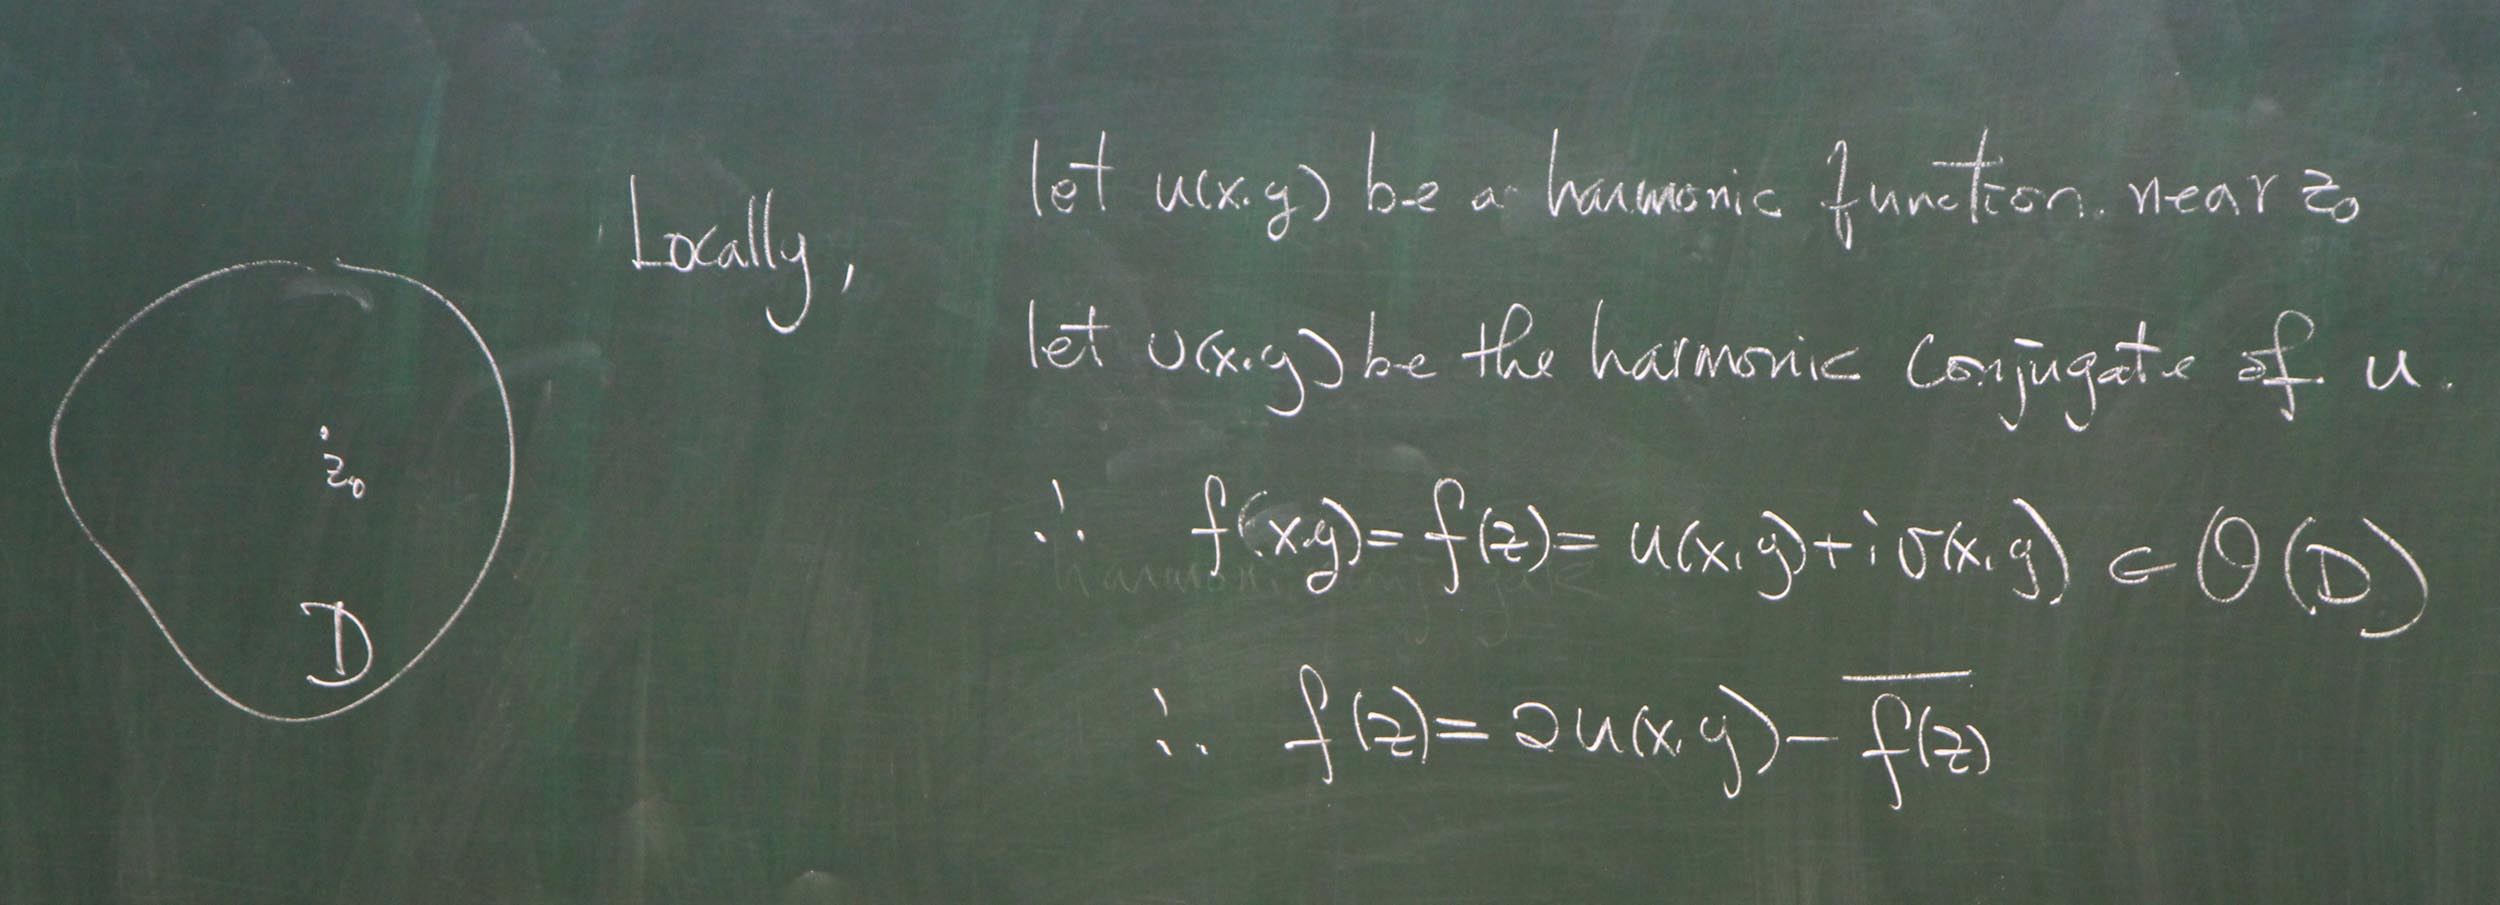 Locally,
let u(x,y) be a harmonic function near z₀
let v(x,y) be the harmonic conjugate of u.
∴ f(x,y) = f(z) = u(x,y) + i v(x,y) ∈ O(D)
∴ f(z) = 2u(x,y) - \overline{f(z)}
z₀
D